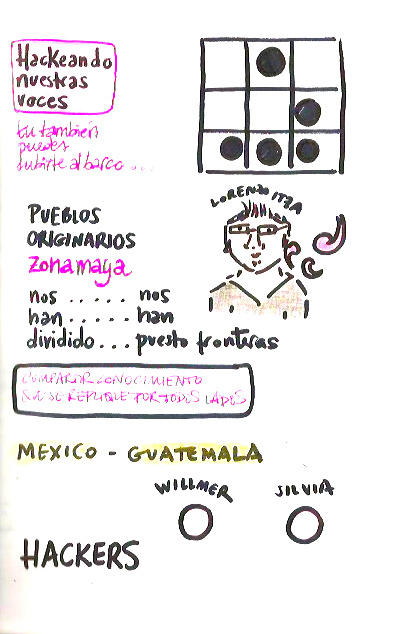 Hackeando
nuestras
voces
tu también
puedes
subirte al barco...
LORENZO ITZA
PUEBLOS
ORIGINARIOS
zona maya
nos ..... nos
han ..... han
dividido... puesto fronteras
COMPARTIR CONOCIMIENTO
QUE SE REPLIQUE POR TODOS LADOS
MEXICO - GUATEMALA
WILLMER
SILVIA
HACKERS